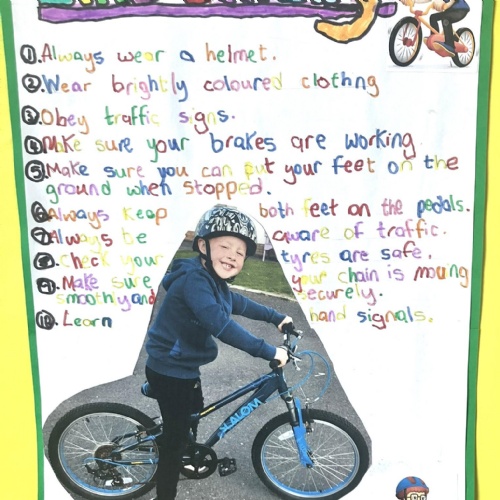 1. Always wear a helmet.
2. Wear brightly coloured clothng
3. Obey traffic signs.
4. Make sure your brakes are working
5. Make sure you can put your feet on the
ground when stopped.
6. Always keep both feet on the pedals.
7. Always be aware of traffic.
8. check your tyres are safe.
9. Make sure your chain is moving
smoothly and securely.
10. Learn hand signals.
SLALOM